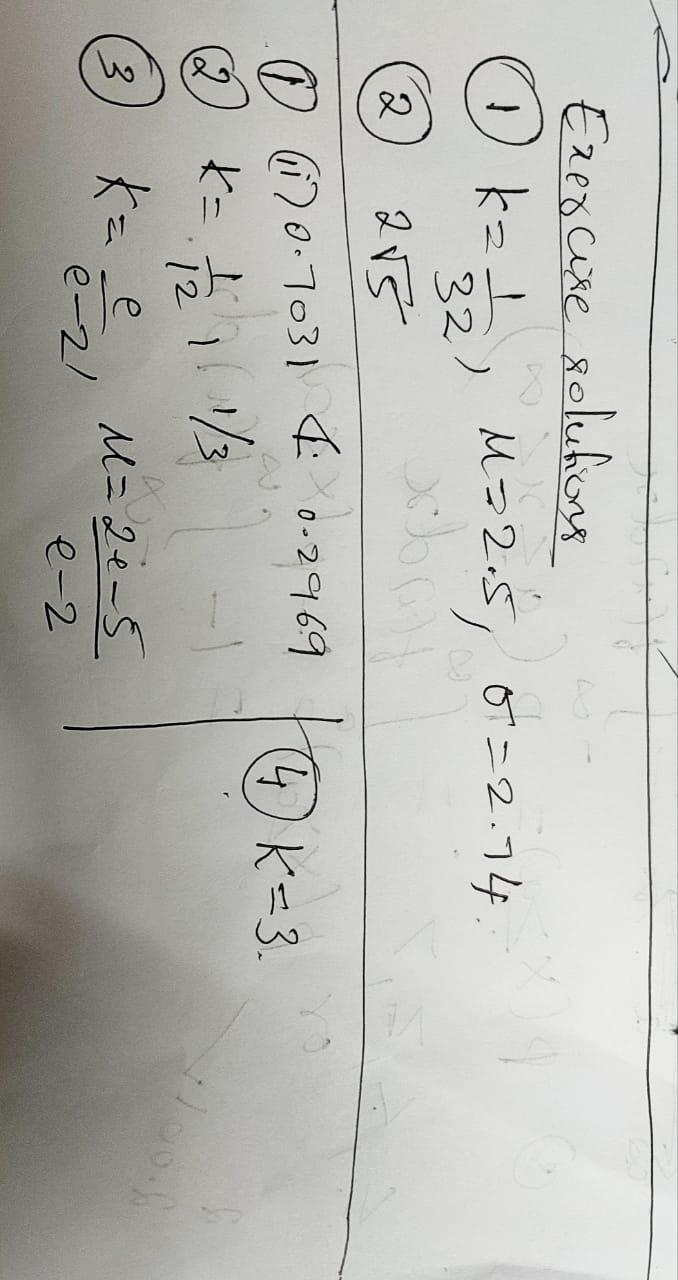 Exercise solutions
① k = 1/32, μ = 2.5, σ = 2.74.
② 2√5
① (ii) 0.7031 & 0.2969
② k = 1/12, 1/3
③ k = e/(e-2), μ = (2e-5)/(e-2)
④ k = 3.